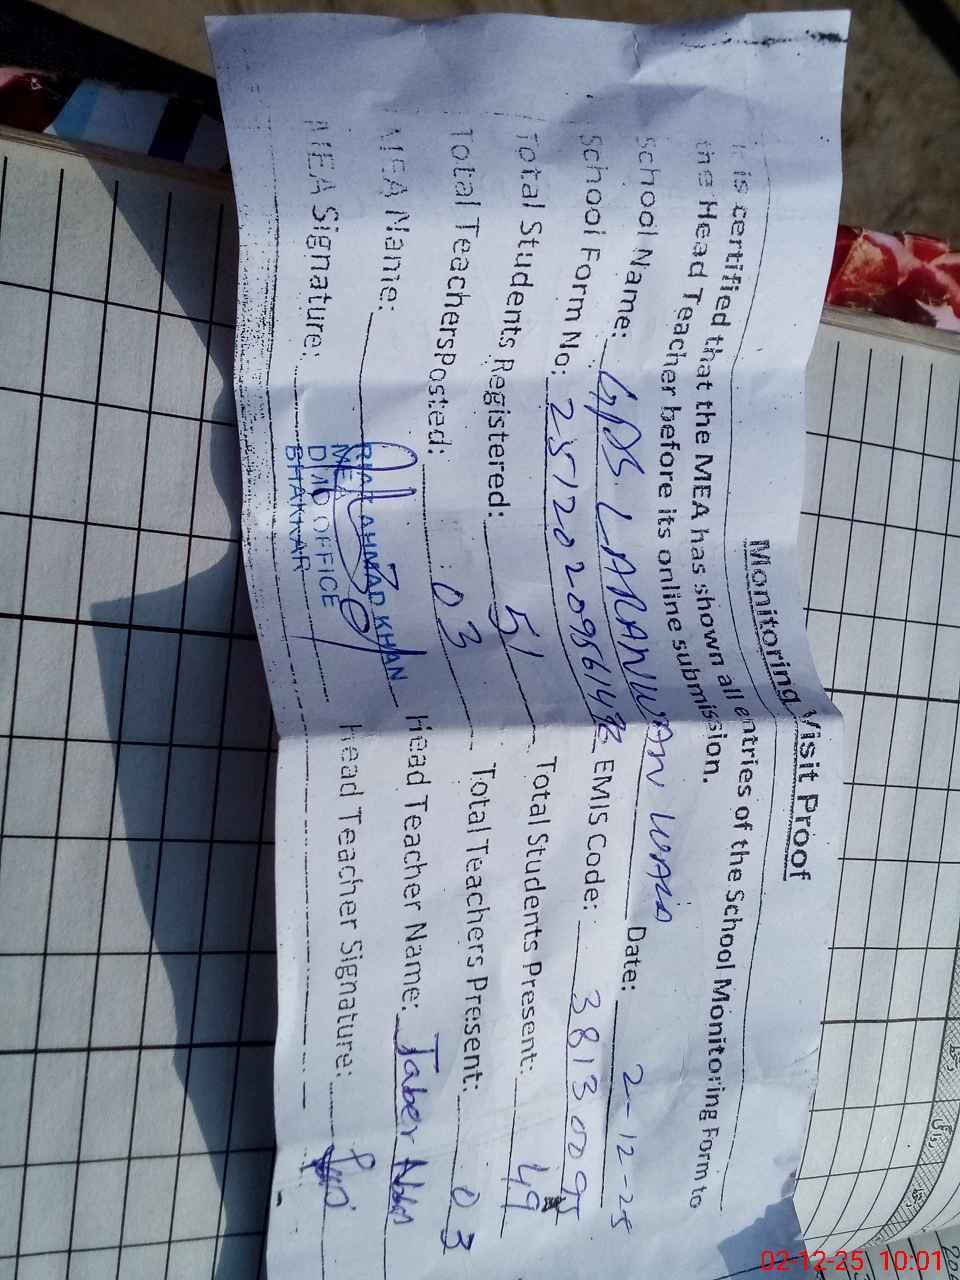 Monitoring Visit Proof
It is certified that the MEA has shown all entries of the School Monitoring Form to
the Head Teacher before its online submission.
School Name: GPS LARANWAN WALA Date: 2-12-25
School Form No: EMIS Code: 38130095
Total Students Registered: 51 Total Students Present: 49
Total TeachersPosted: 03 Total Teachers Present: 03
MEA Name: Head Teacher Name: Jaber
RIAZ AHMAD KHAN
MEA
DMO OFFICE
BHAKKAR
MEA Signature: Head Teacher Signature:
02-12-25 10:01